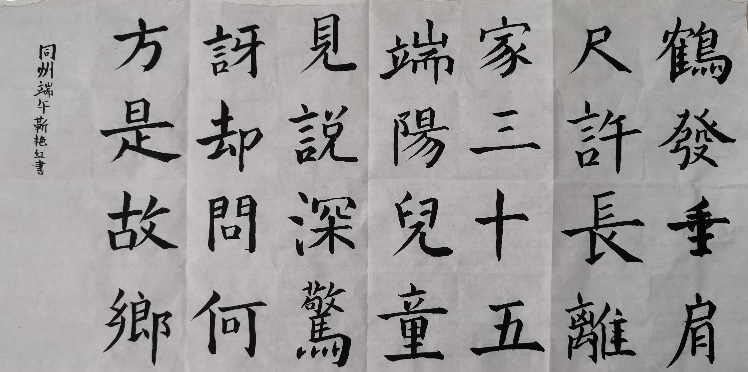 鶴發垂肩
尺許長離
家三十五
端陽兒童
見説深驚
訝却問何
方是故鄉
同州端午靳艳红書